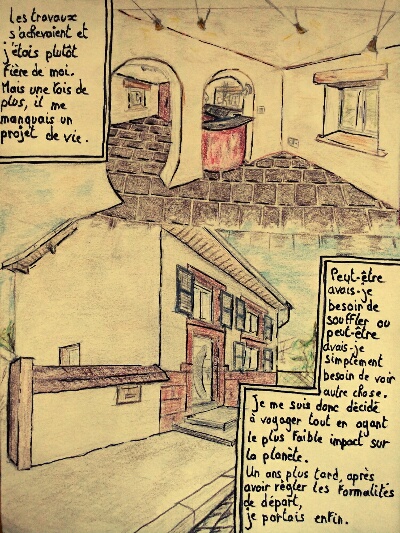 Les travaux
s'achevaient et
j'étais plutôt
fière de moi.
Mais une fois de
plus, il me
manquais un
projet de vie.
Peut-être
avais-je
besoin de
souffler ou
peut-être
avais-je
simplement
besoin de voir
autre chose.
Je me suis donc décidé
à voyager tout en ayant
le plus faible impact sur
la planète.
Un ans plus tard, après
avoir règler les formalités
de départ,
je partais enfin.